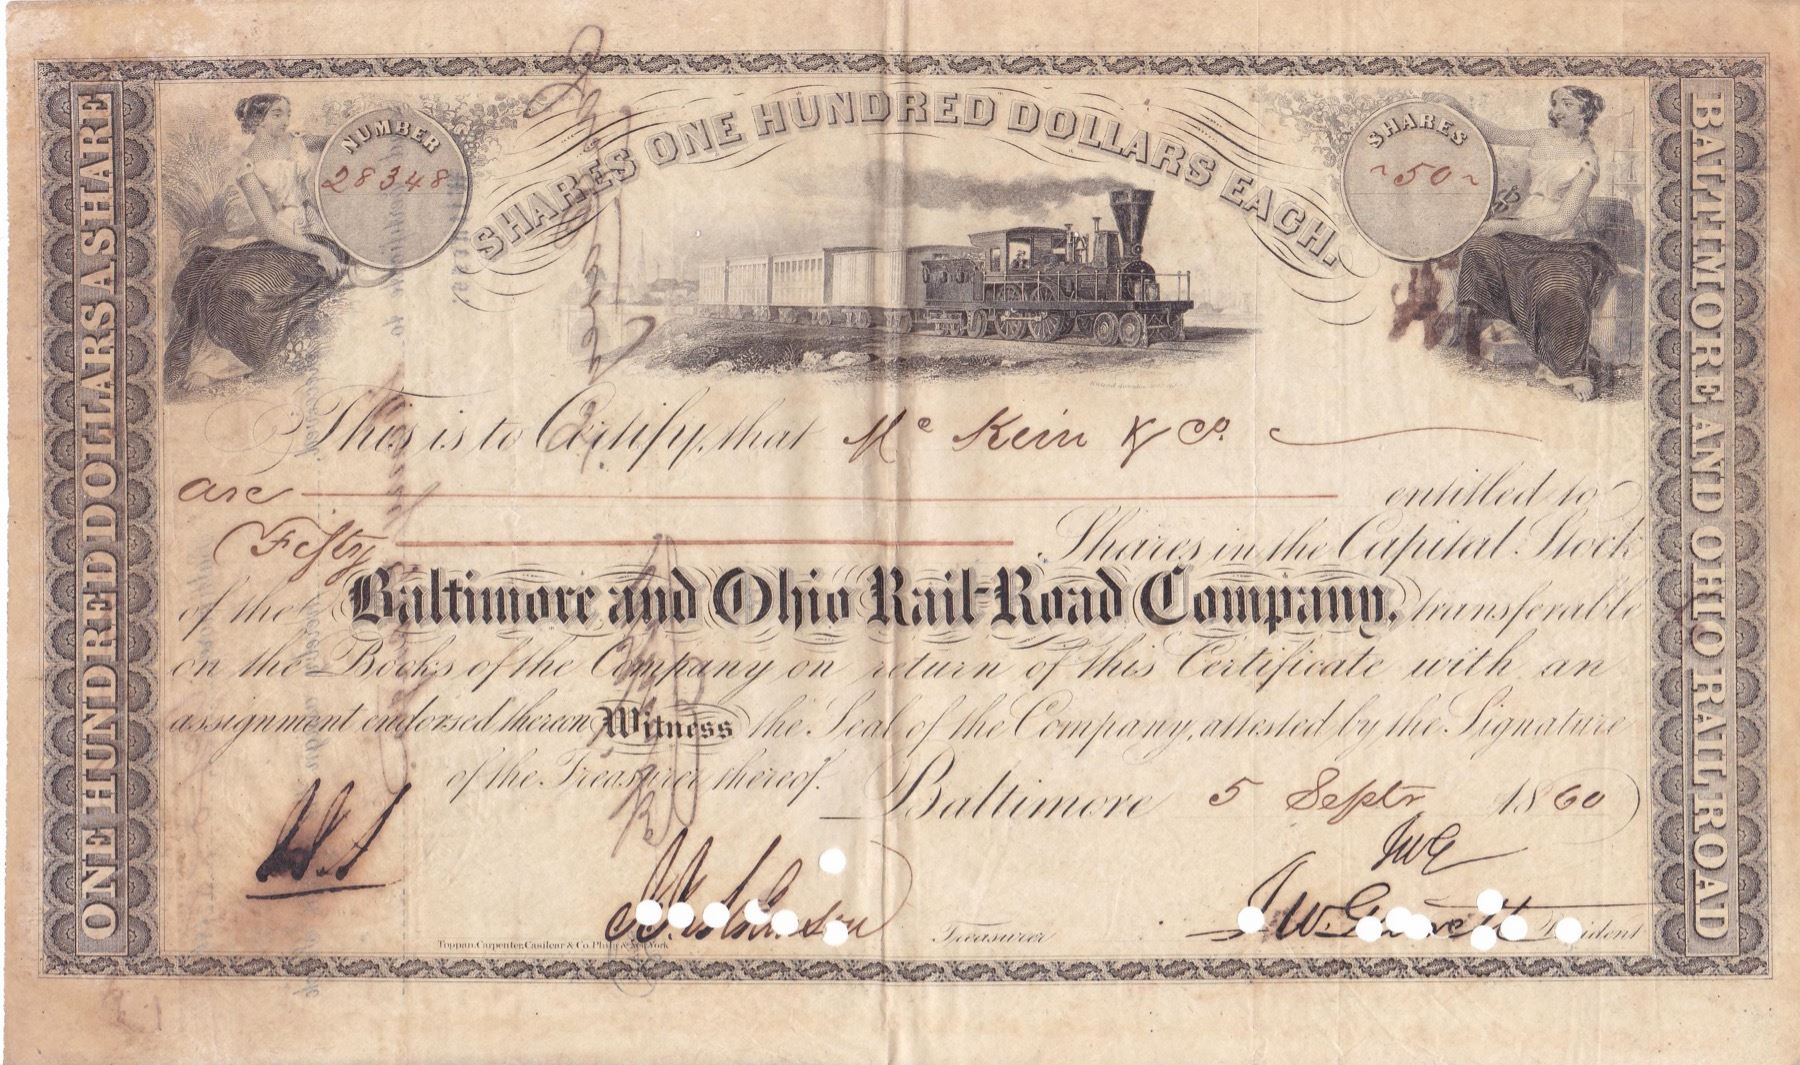 ONE HUNDRED DOLLARS A SHARE
NUMBER
28348
SHARES ONE HUNDRED DOLLARS EACH.
SHARES
~50~
BALTIMORE AND OHIO RAIL ROAD
This is to Certify, that Mc Kein & Co.
are entitled to
Fifty Shares in the Capital Stock
of the Baltimore and Ohio Rail-Road Company, transferable
on the Books of the Company on return of this Certificate with an
assignment endorsed thereon Witness the Seal of the Company, attested by the Signature
of the Treasurer thereof. Baltimore 5 Septr 1860
JWG
J W Garrett President
Treasurer
Toppan, Carpenter, Casilear & Co. Phila. & New York